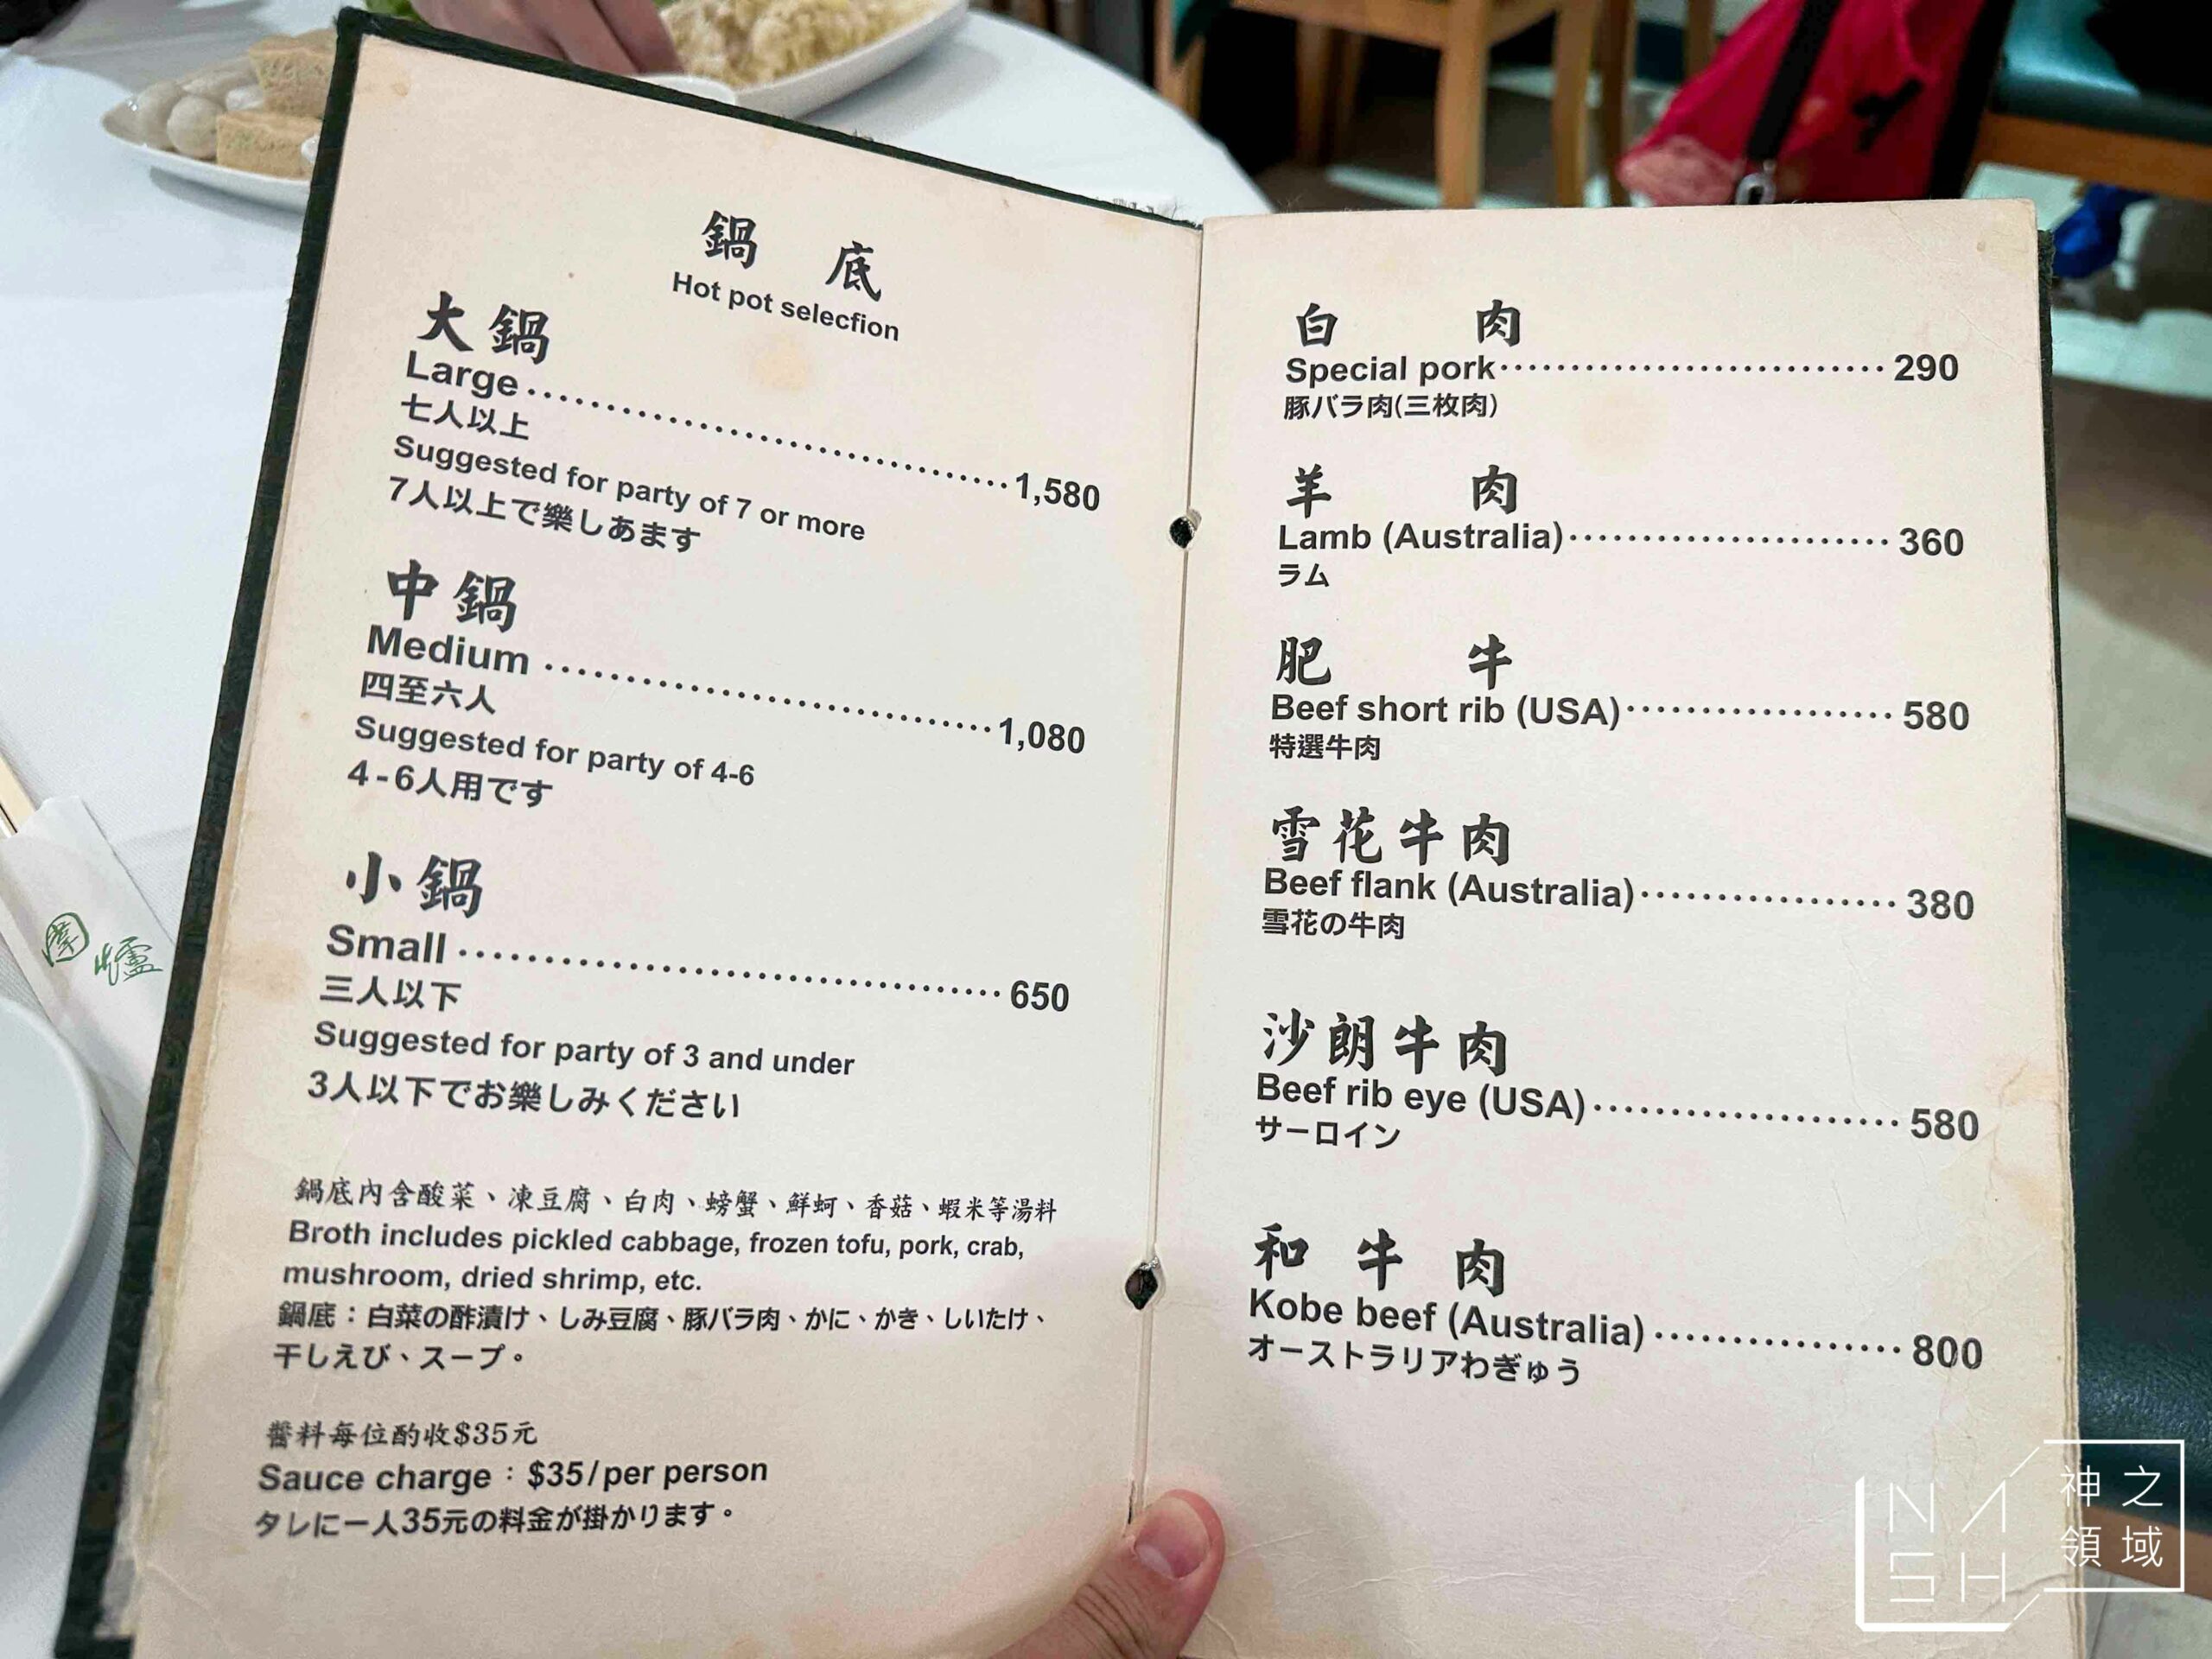 鍋底
Hot pot selecfion
大鍋
Large 1,580
七人以上
Suggested for party of 7 or more
7人以上で樂しあます
中鍋
Medium 1,080
四至六人
Suggested for party of 4-6
4-6人用です
小鍋
Small 650
三人以下
Suggested for party of 3 and under
3人以下でお樂しみください
鍋底內含酸菜、凍豆腐、白肉、螃蟹、鮮蚵、香菇、蝦米等湯料
Broth includes pickled cabbage, frozen tofu, pork, crab,
mushroom, dried shrimp, etc.
鍋底：白菜の酢漬け、しみ豆腐、豚バラ肉、かに、かき、しいたけ、
干しえび、スープ。
醬料每位酌收$35元
Sauce charge：$35/per person
タレに一人35元の料金が掛かります。
白肉
Special pork 290
豚バラ肉(三枚肉)
羊肉
Lamb (Australia) 360
ラム
肥牛
Beef short rib (USA) 580
特選牛肉
雪花牛肉
Beef flank (Australia) 380
雪花の牛肉
沙朗牛肉
Beef rib eye (USA) 580
サーロイン
和牛肉
Kobe beef (Australia) 800
オーストラリアわぎゅう
圍爐
NASH
神之
領域